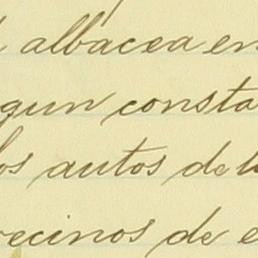 albacea en
gun consta
los autos de l
vecinos de e